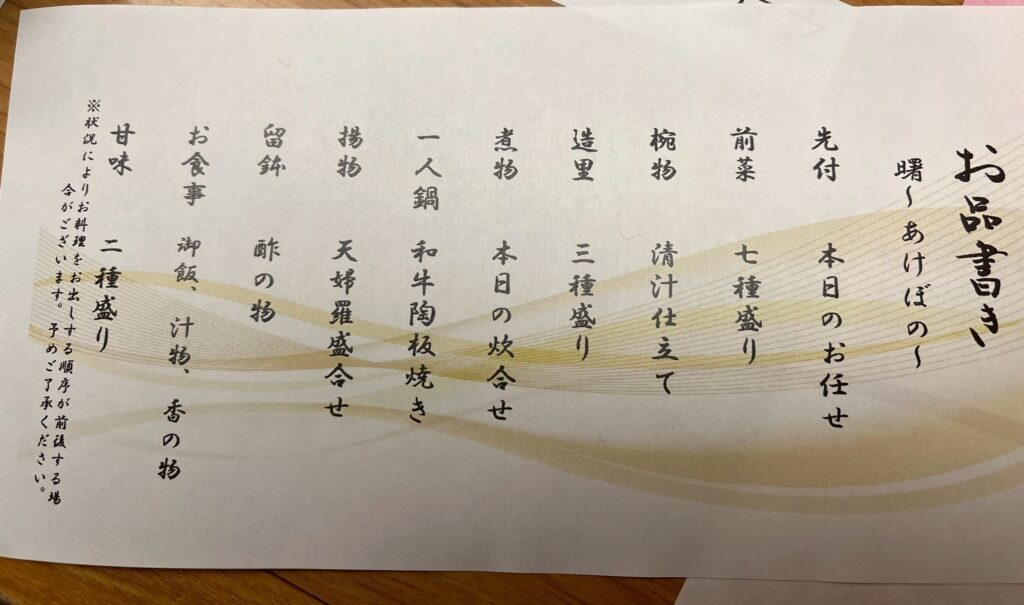 お品書き
曙～あけぼの～
先付 本日のお任せ
前菜 七種盛り
椀物 清汁仕立て
造里 三種盛り
煮物 本日の炊合せ
一人鍋 和牛陶板焼き
揚物 天婦羅盛合せ
留鉢 酢の物
お食事 御飯、汁物、香の物
甘味 二種盛り
※状況によりお料理をお出しする順序が前後する場
合がございます。予めご了承ください。